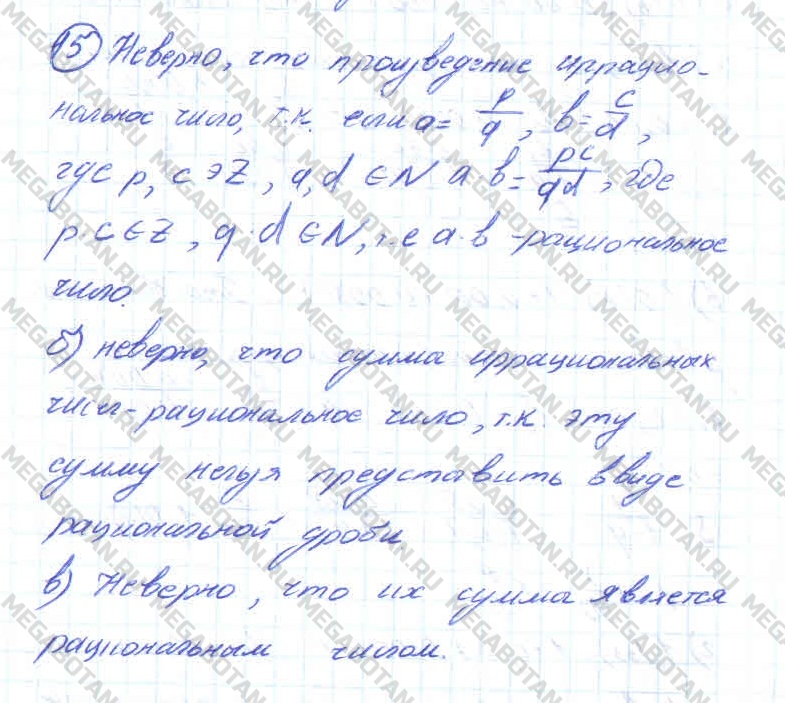 15 Неверно, что произведение иррацио-
нальное число, т.к. если a = p/q, b = c/d,
где p, c ∍ Z, q, d ∈ N a·b = pc/qd, где
p·c ∈ Z, q·d ∈ N, т.е a·b - рациональное
число.
б) неверно, что сумма иррациональных
чисел - рациональное число, т.к. эту
сумму нельзя представить в виде
рациональной дроби.
в) Неверно, что их сумма является
рациональным числом.
MEGABOTAN.RU